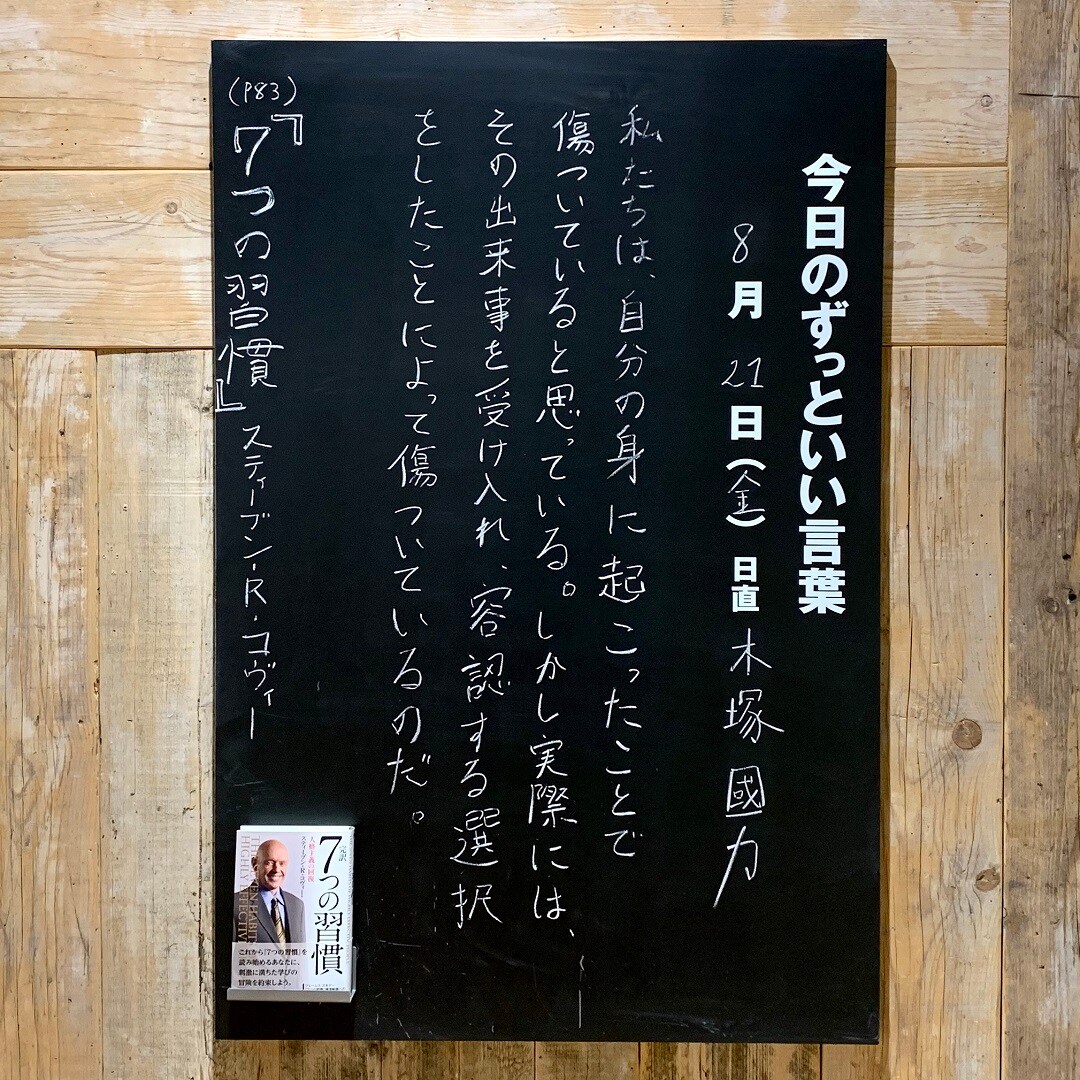 今日のずっといい言葉
8月21日(金) 日直 木塚國力
私たちは、自分の身に起こったことで
傷ついていると思っている。しかし実際には、
その出来事を受け入れ、容認する選択
をしたことによって傷ついているのだ。
(P83)
『7つの習慣』スティーブン・R・コヴィー
完訳
7つの習慣
人格主義の回復
スティーブン・R・コヴィー
HIGHLY EFFECTIVE
これから「7つの習慣」を
読み始めるあなたに、
刺激に満ちた学びの
冒険を約束しよう。